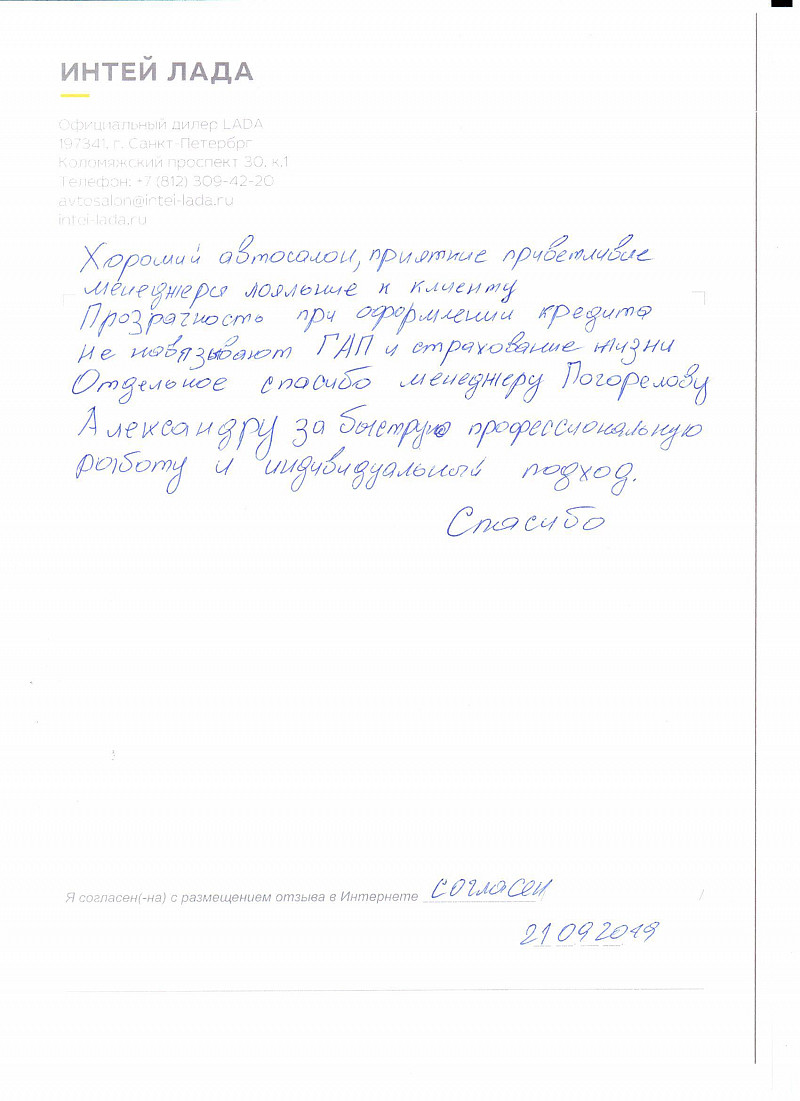 ИНТЕЙ ЛАДА
Официальный дилер LADA
197341, г. Санкт-Петербрг
Коломяжский проспект 30, к.1
Телефон: +7 (812) 309-42-20
avtosalon@intei-lada.ru
intei-lada.ru
Хороший автосалон, приятные приветливые
менеджера лояльные к клиенту
Прозрачность при оформлении кредита
не навязывают ГАП и страхование жизни
Отдельное спасибо менеджеру Погорелову
Александру за быструю профессиональную
работу и индивидуальный подход.
Спасибо
Я согласен(-на) с размещением отзыва в Интернете согласен
21 09 2019